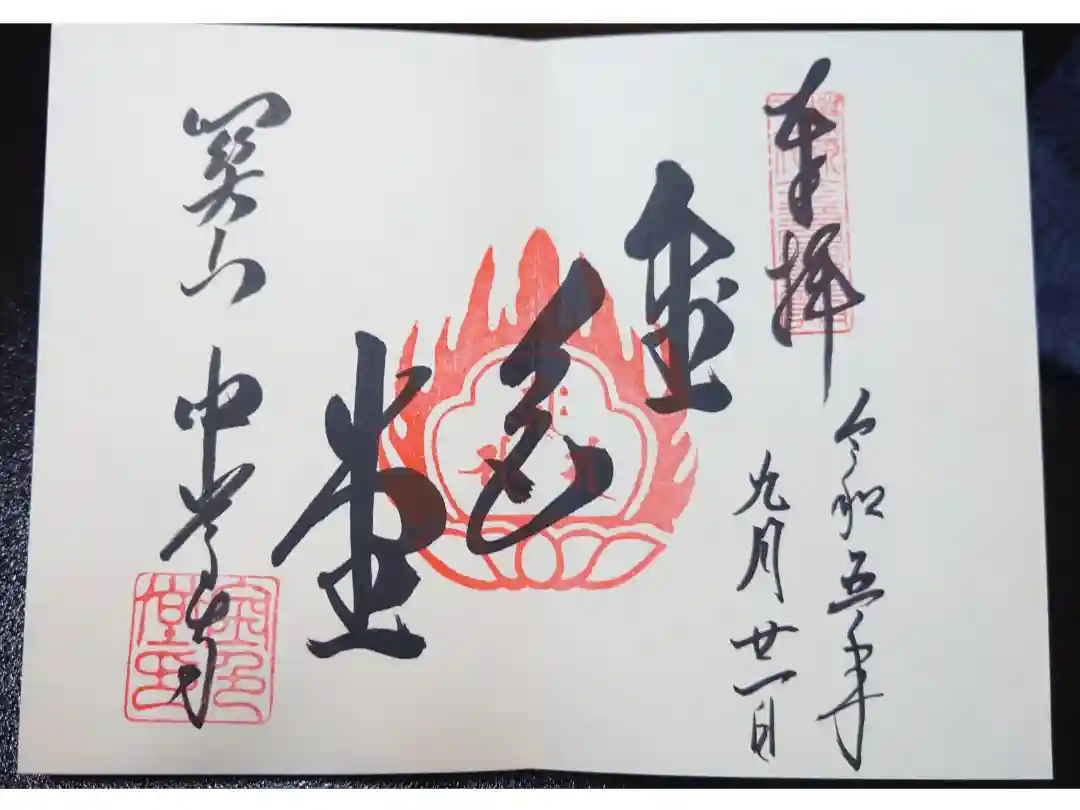 奉拝
令和五年
九月廿一日
金色堂
関山
中尊寺
金色堂印